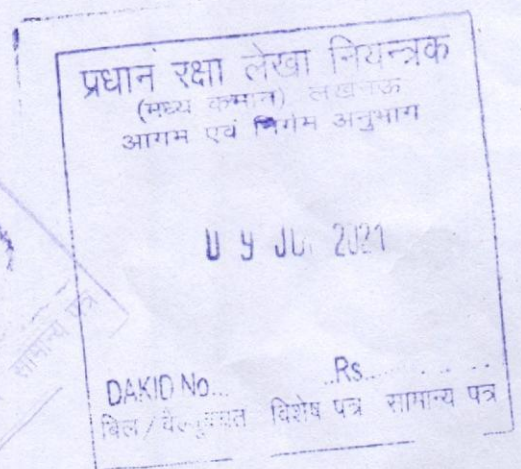 प्रधान रक्षा लेखा नियन्त्रक
(मध्य कमान) लखनऊ
आगम एवं निर्गम अनुभाग
2021
DAKID No... ..Rs.........
बिल / विशेष पत्र सामान्य पत्र
सामान्य पत्र